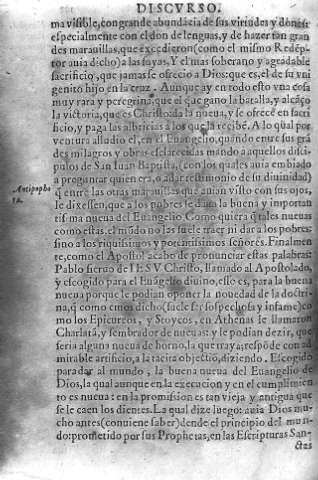 DISCVRSO.
ma visible, con grande abundácia de sus virtudes y dones:
especialmente con el don de lenguas, y de hazer tan gran
des marauillas, que excedieron (como el mismo Redép-
tor auia dicho) a las suyas. Y el mas soberano y agradable
sacrificio, que jamas se ofrecio a Dios: que es, el de su vni
genito hijo en la cruz. Aunque ay en todo esto vna cosa
muy rara y peregrina, que el que gano la batalla, y alcáço
la victoria, que es Christo: da la nueua, y se ofrece en sacri
ficio, y paga las albricias a los que la recibé. A lo qual por
ventura alludio el, en el Euangelio, quando entre sus grá
des milagros y obras esclarecidas mando a aquellos disci-
pulos de San Iuan Baptista, (con los quales auia embiado
a preguntar quien era, o a dar testimonio de su diuinidad)
q̃ entre las otras marauillas que auian visto con sus ojos,
le dixessen, que a los pobres se daua la buena y importan
tissima nueua del Euangelio. Como quiera q̃ tales nueuas
como estas, el múdo no las suele traer ni dar a los pobres:
sino a los riquissimos y potentissimos señores. Finalmen-
te, como el Apostol acabo de pronunciar estas palabras:
Pablo sieruo de IESV Christo, llamado al Apostolado,
y escogido para el Euágelio diuino, esso es, para la buena
nueua: porque le podian oponer la nouedad de la doctri-
na, q̃ como emos dicho (suele ser sospechosa y infame) co
mo los Epicureos, y Stoycos, en Athenas le llamaron
Charlatá, y sembrador de nueuas: y le podian dezir, que
seria alguna nueua de horno, la que traya; respóde con ad
mirable artificio, a la tacita objectió, diziendo. Escogido
para dar al mundo, la buena nueua del Euangelio de
Dios, la qual aunque en la execucion y en el cumplimien
to es nueua: en la promission es tan vieja y antigua que
se le caen los dientes. La qual dize luego: auia Dios mu-
cho antes (conuiene saber) dende el principio del mun-
do: prometido por sus Prophetas, en las Escripturas San-
ctas